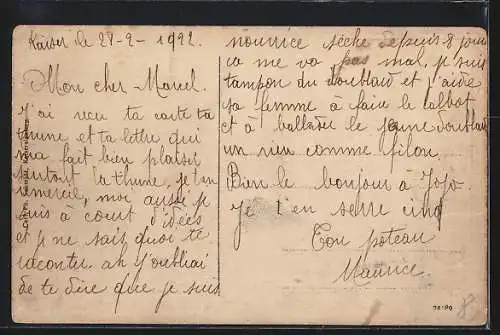 Kaiser le 28-2-1922.
Mon cher Marcel.
J'ai reçu ta carte ta
thune et ta lettre qui
m'a fait bien plaisir
surtout la thune, je t'en
remerci, moi aussi je
suis à court d'idées
et je ne sais quoi te
raconter. ah j'oubliai
de te dire que je suis
nourrice sèche depuis 8 jours
ca me va pas mal, je suis
tampon du doublard et j'aide
sa femme à faire le
et à ballader le jeune doublard
un rien comme filon.
Bien le bonjour à Jojo.
Je t'en serre cinq
Ton poteau
Maurice.